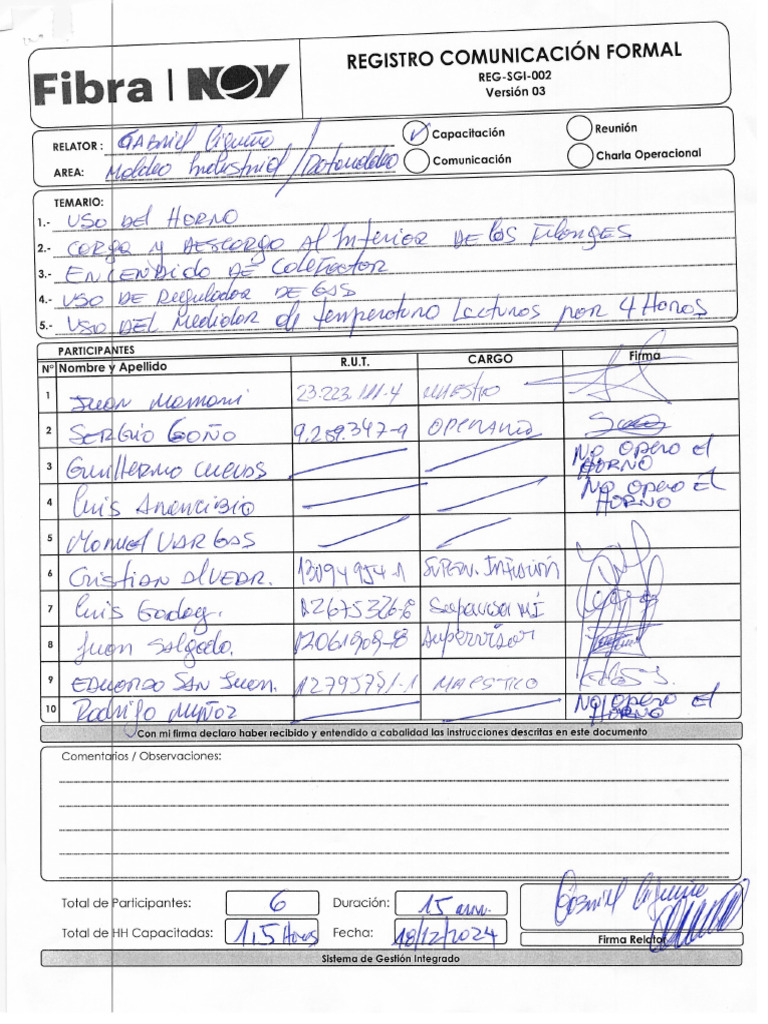 Fibra | NOV
REGISTRO COMUNICACIÓN FORMAL
REG-SGI-002
Versión 03
RELATOR : GABRIEL
Capacitación
Reunión
AREA: Moldeo Industrial /
Comunicación
Charla Operacional
TEMARIO:
1.- USO DEL HORNO
2.- CARGA Y DESCARGA Al Interior DE LOS Flanges
3.- ENCENDIDO DE Calefactor
4.- USO DE Regulador DE GAS
5.- USO DEL Medidor de temperatura Lecturas por 4 Horas
PARTICIPANTES
N° Nombre y Apellido R.U.T. CARGO Firma
1 Juan Mamani 23.223.111-4 MAESTRO
2 SERGIO GOÑO 9.289.347-9 OPERARIO
3 Guillermo Cuevas No opero el HORNO
4 Luis Anancibio No opero él HORNO
5 Manuel VARGAS
6 Cristian Alvear. 13094954-1 Superv. Infusión
7 Luis Godoy. 12675326-8 Supervisor MI
8 Juan Salgado. 12061909-8 Supervisor
9 EDUARDO SAN Juan. 12795751-1 MAESTRO
10 Rodrigo Muñoz No opero el HORNO
Con mi firma declaro haber recibido y entendido a cabalidad las instrucciones descritas en este documento
Comentarios / Observaciones:
Total de Participantes: 6 Duración: 15 min.
Total de HH Capacitadas: 1,5 Horas Fecha: 18/12/2024
Gabriel
Firma Relator
Sistema de Gestión Integrado